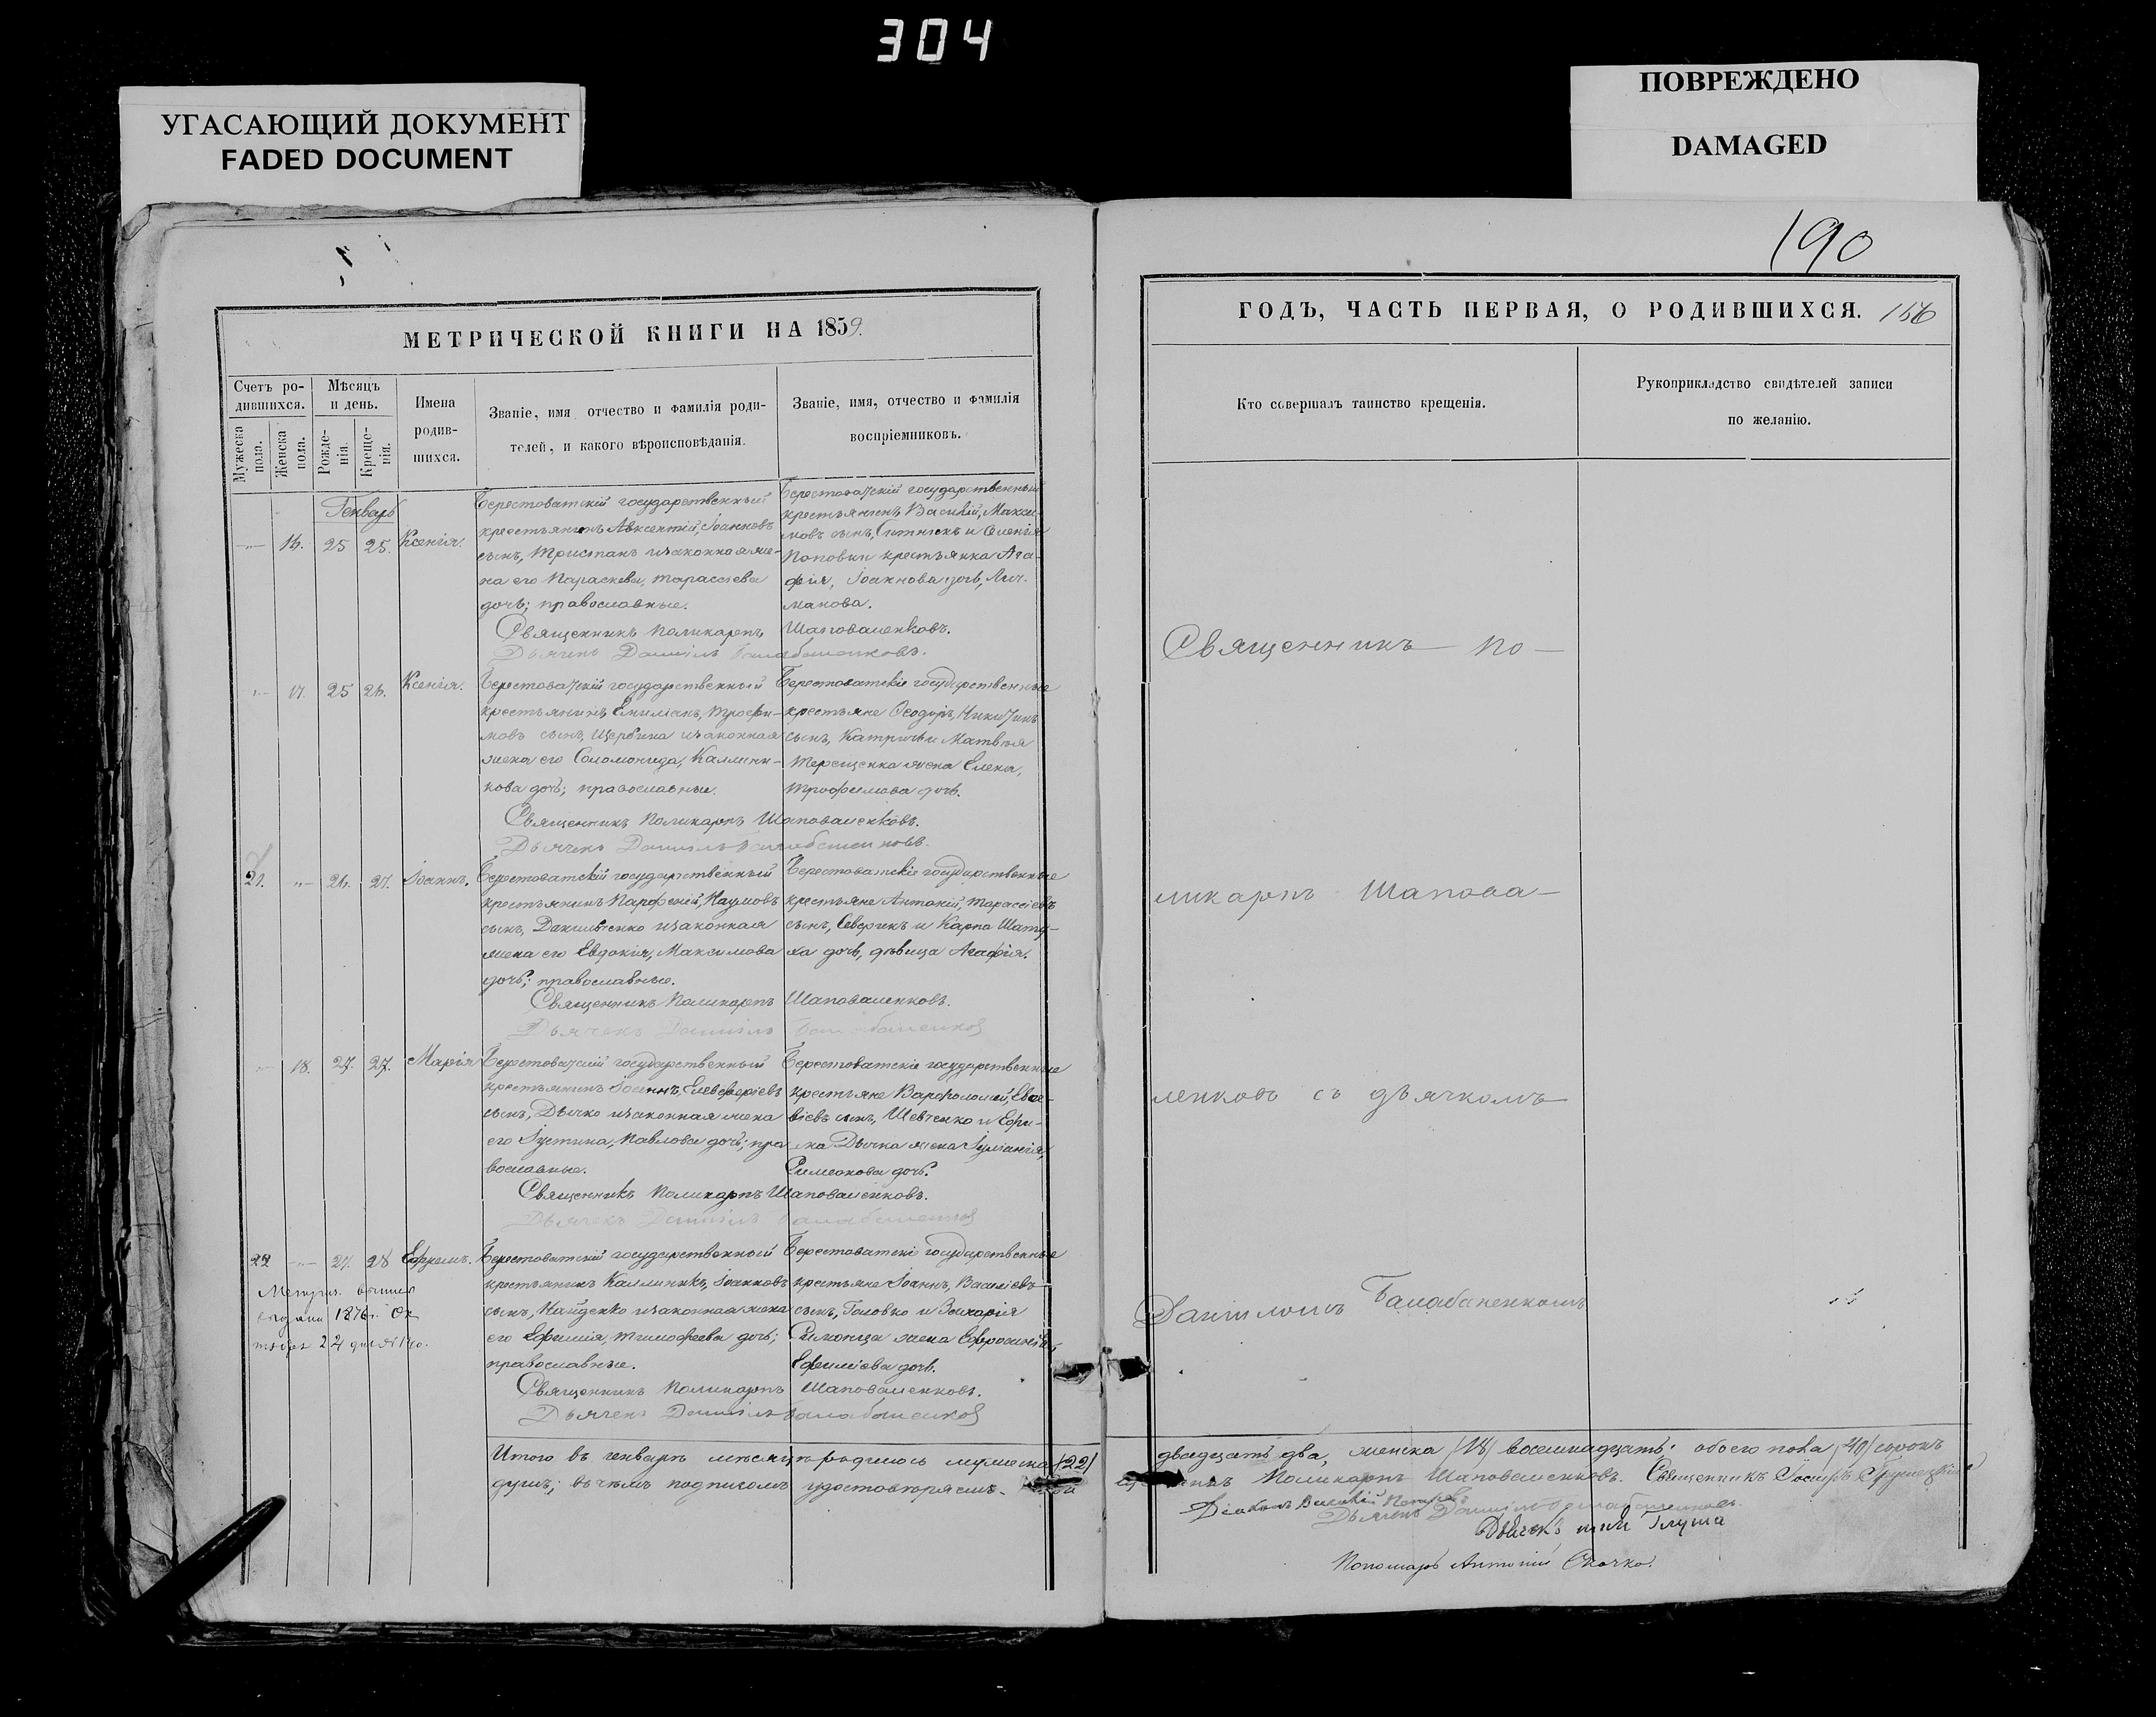 304
УГАСАЮЩИЙ ДОКУМЕНТ
FADED DOCUMENT
ПОВРЕЖДЕНО
DAMAGED
190
МЕТРИЧЕСКОЙ КНИГИ НА 1859.
Счетъ ро-
дившихся.
Мужеска пола.
Женска пола.
Мѣсяцъ
и день.
Рожде-
нія.
Креще-
нія.
Имена
родив-
шихся.
Званіе, имя отчество и фамилія роди-
телей, и какого вѣроисповѣданія.
Званіе, имя, отчество и фамилія
воспріемниковъ.
Генварь
16. 25 25. Ксенія.
Берестоватскій государственный
крестьянинъ Авксентій, Іоанновъ
сынъ, Тристанъ изаконная же-
на его Параскева, Тарассіева
дочь; православные.
Берестоватскій государственный
крестьянинъ Василій, Макси-
мовъ сынъ, и
Поповки крестьянка Ага-
фія, Іоаннова дочь, Лич-
макова.
Священникъ Поликарпъ Шаповаленковъ.
Дьячекъ Даніилъ Балабаненковъ.
17. 25 26. Ксенія.
Берестоватскій государственный
крестьянинъ Емиліанъ, Трофи-
мовъ сынъ, Щербина изаконная
жена его Соломонида, Каллини-
кова дочь; православные.
Берестоватскіе государственные
крестьяне Ѳеодоръ, Никитинъ
сынъ, и Матвѣя
Терещенка жена Елена,
Трофимова дочь.
Священникъ Поликарпъ Шаповаленковъ.
Дьячекъ Даніилъ Балабаненковъ.
21. 26. 27. Іоаннъ.
Берестоватскій государственный
крестьянинъ Парфеній, Наумовъ
сынъ, Данильченко изаконная
жена его Евдокія, Максимова
дочь; православные.
Берестоватскіе государственные
крестьяне Антоній, Тарассіевъ
сынъ, Северинъ и Карпа Шату-
ха дочь, дѣвица Агафія.
Священникъ Поликарпъ Шаповаленковъ.
Дьячекъ Даніилъ Балабаненковъ
18. 27. 27. Марія
Берестоватскій государственный
крестьянинъ Іоаннъ, Елевферіевъ
сынъ, Дычко изаконная жена
его Іустина, Павлова дочь; пра
вославные.
Берестоватскіе государственные
крестьяне Варфоломей, Евсе-
віевъ сынъ, Шевченко и Ефи-
ма Дычка жена Іуліанія,
Симеонова дочь.
Священникъ Поликарпъ Шаповаленковъ.
Дьячекъ Даніилъ Балабаненковъ
22 27. 28 Ефремъ.
Берестоватскій государственный
крестьянинъ Каллиникъ, Іоанновъ
сынъ, Найденко изаконная жена
его Ефимія, Тимофеева дочь;
православные.
Берестоватскіе государственные
крестьяне Іоаннъ, Василіевъ
сынъ, Головко и Захарія
Симонца жена Ефросинія,
Ефиміева дочь.
Метрич. выпись
выдана 1876 г. Ок
тября 22 дня №
Священникъ Поликарпъ Шаповаленковъ.
Дьячекъ Даніилъ Балабаненковъ
Итого въ генварѣ мѣсяцѣ родилось мужеска /22/
душъ; въ чемъ подписомъ удостовѣряемъ.
ГОДЪ, ЧАСТЬ ПЕРВАЯ, О РОДИВШИХСЯ. 156
Кто совершалъ таинство крещенія.
Рукоприкладство свидѣтелей записи
по желанію.
Священникъ По-
ликарпъ Шапова-
ленковъ съ дьячкомъ
Даніиломъ Балабаненкомъ
двадцать два, женска /18/ восемнадцать: обоего пола /40/ сорокъ
Поликарпъ Шаповаленковъ. Священникъ
Діаконъ Василій
Дьячекъ Даніилъ Балабаненковъ.
Дьячекъ Глуша
Пономарь Антоній Скачко.